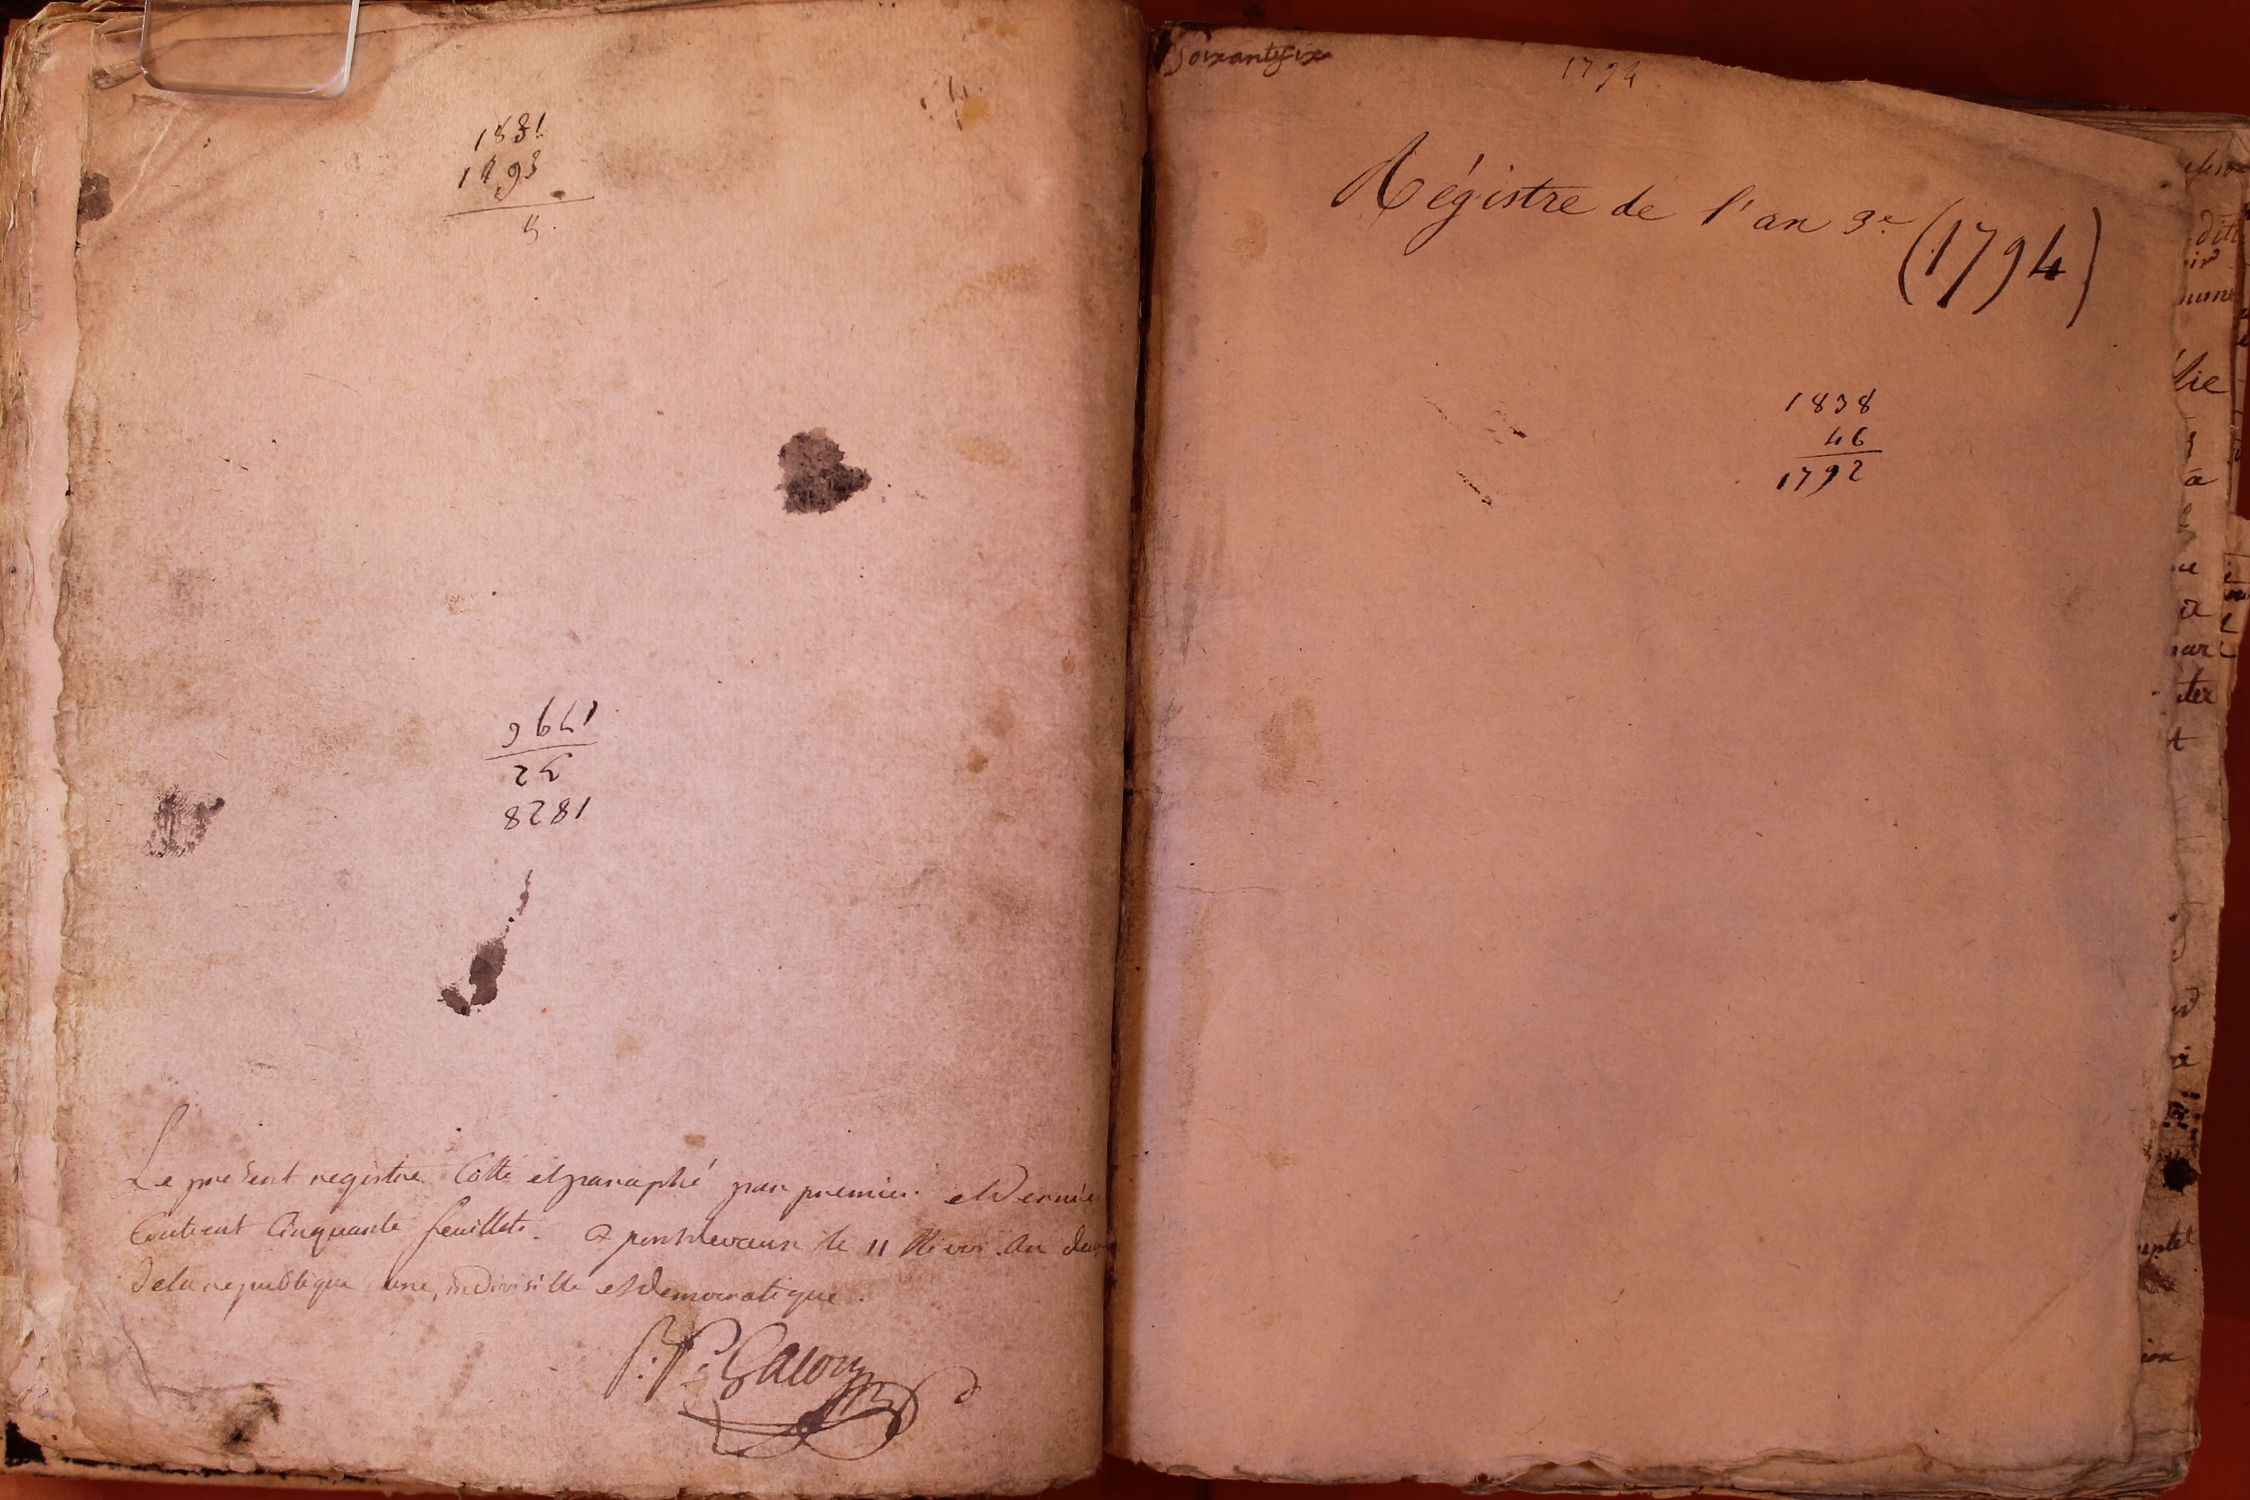 1831
1793
1796
32
1828
Le present registre Cotté et paraphé par premier et Dernier
Contient Cinquante feuillets. a pontdevaux le 11 Nivos. an deux
de la republique une, indivisible et democratique.
Soixantesix
1794
Régistre de l'an 3.e (1794)
1838
46
1792